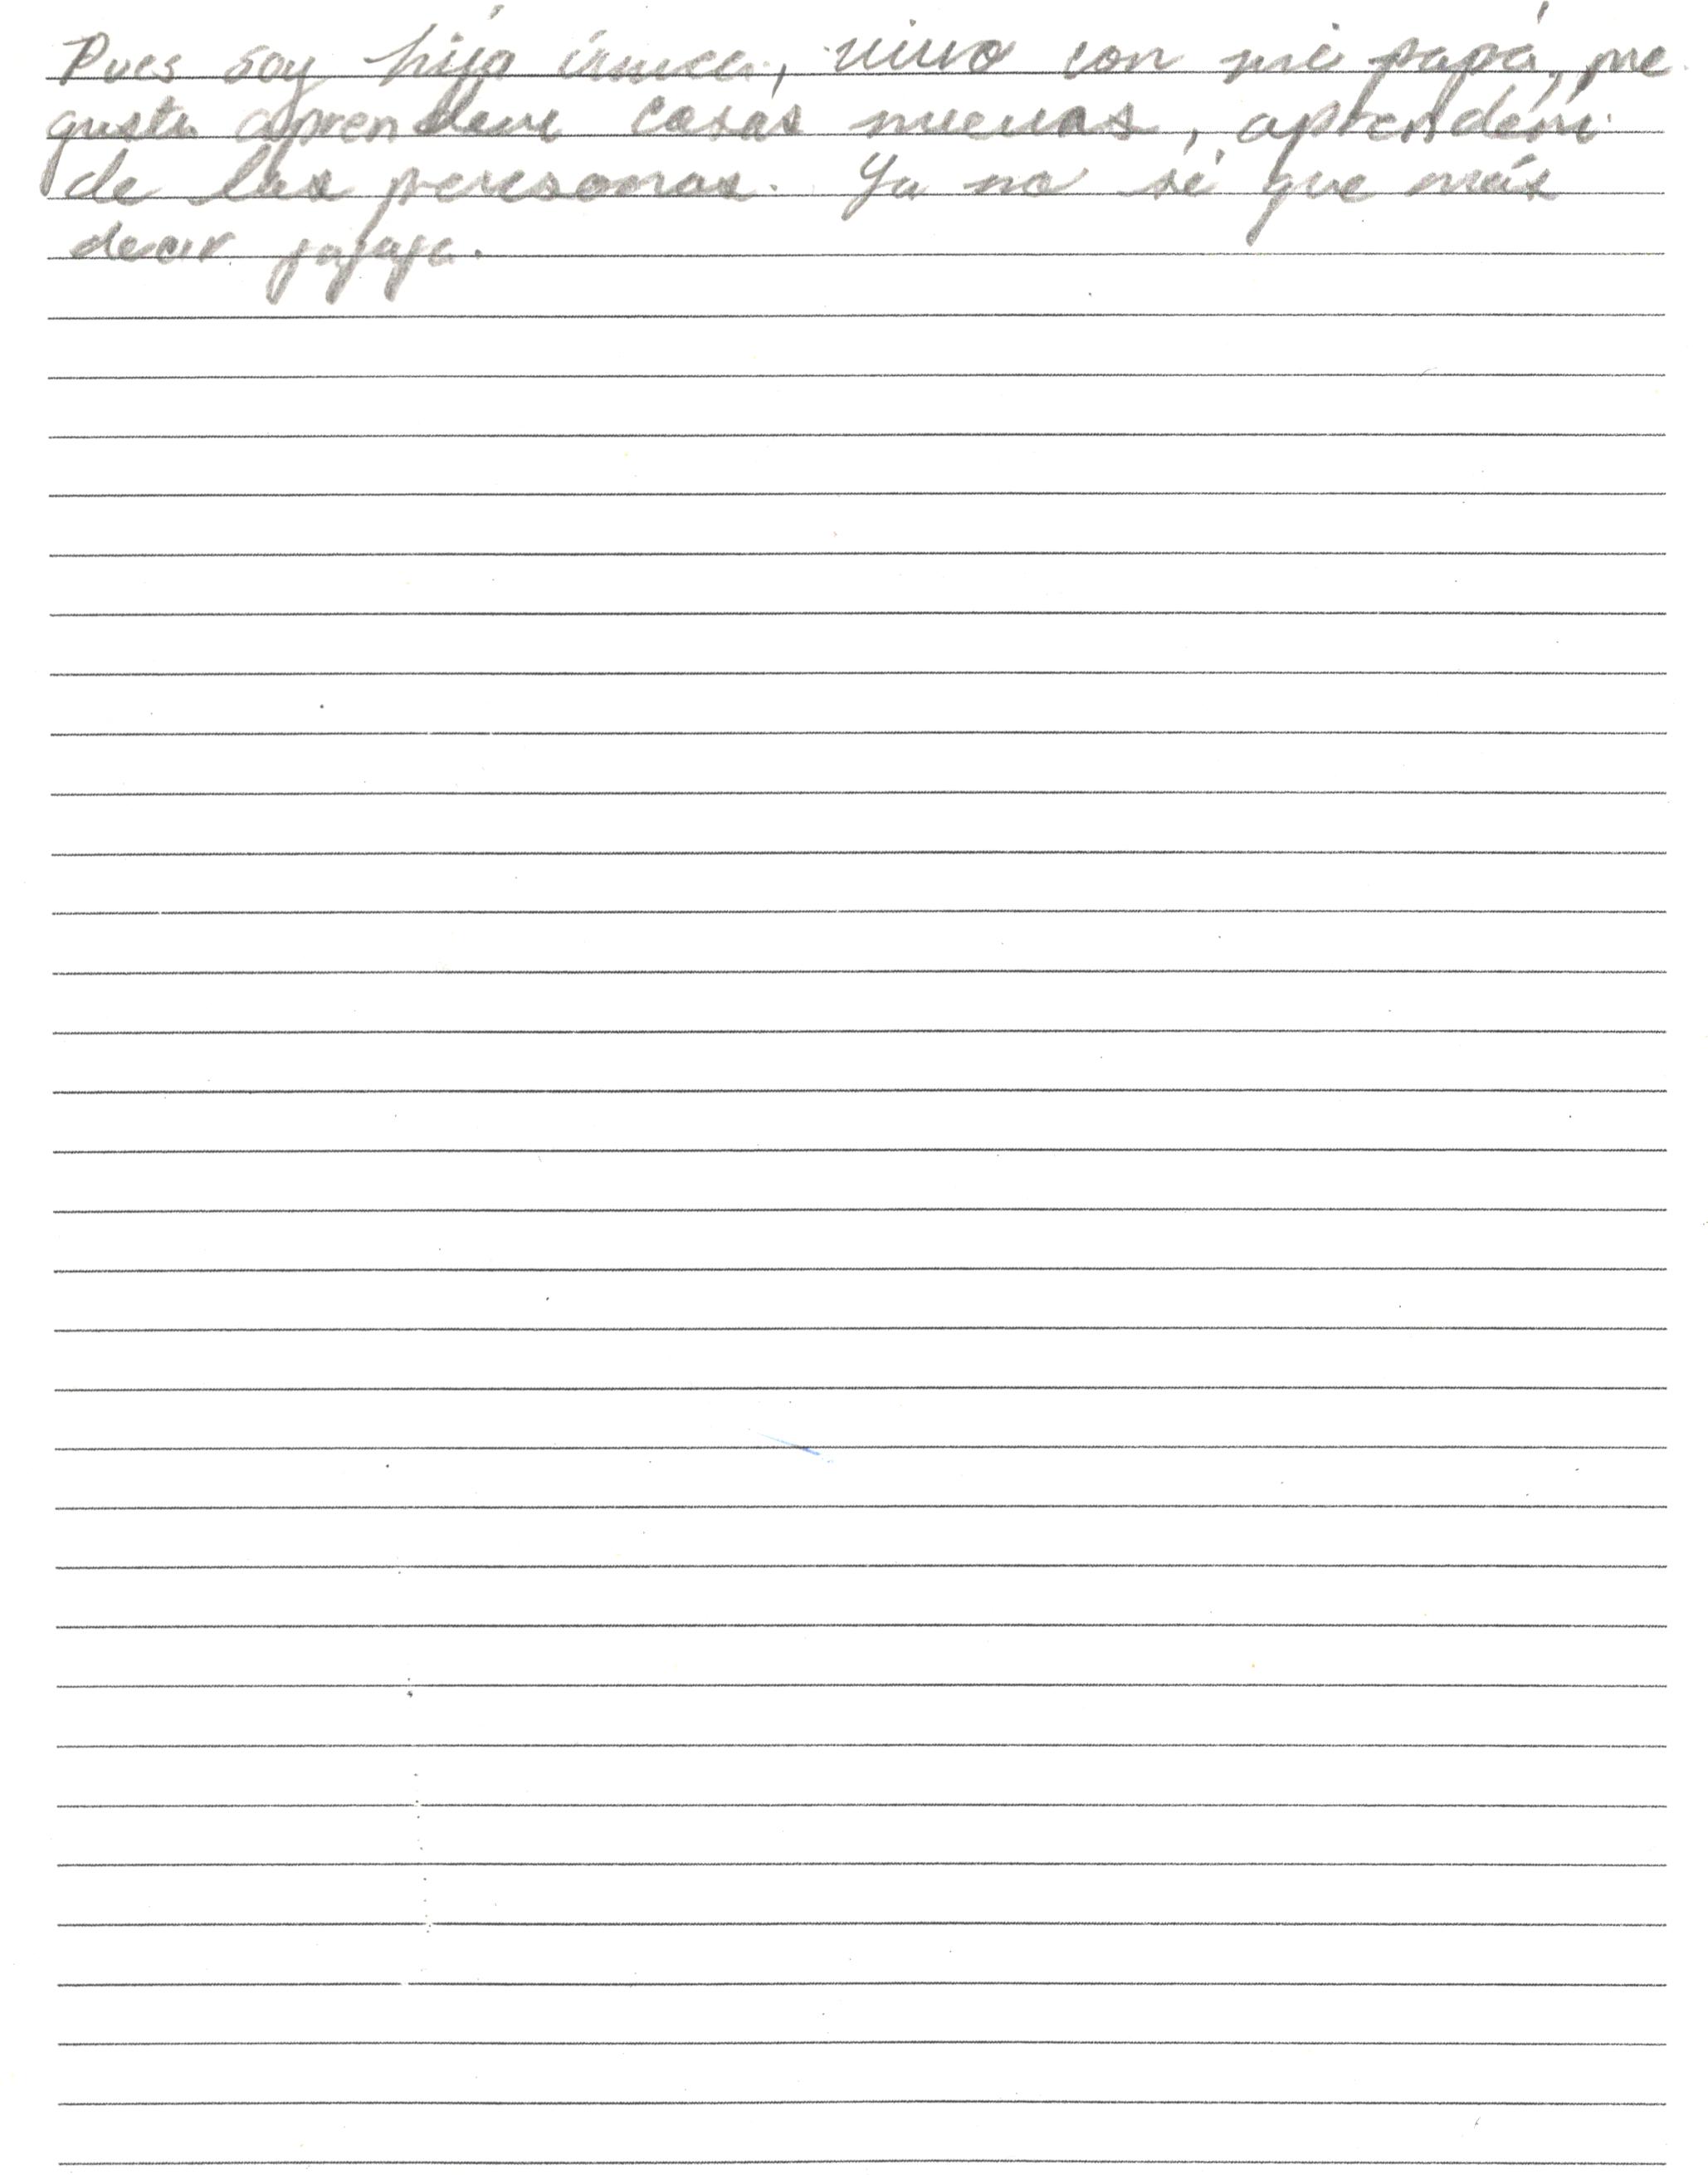 Pues soy hija única, vivo con mi papá, me
gusta aprender cosas nuevas, aprender
de las personas. Ya no sé que más
decir jajaja.